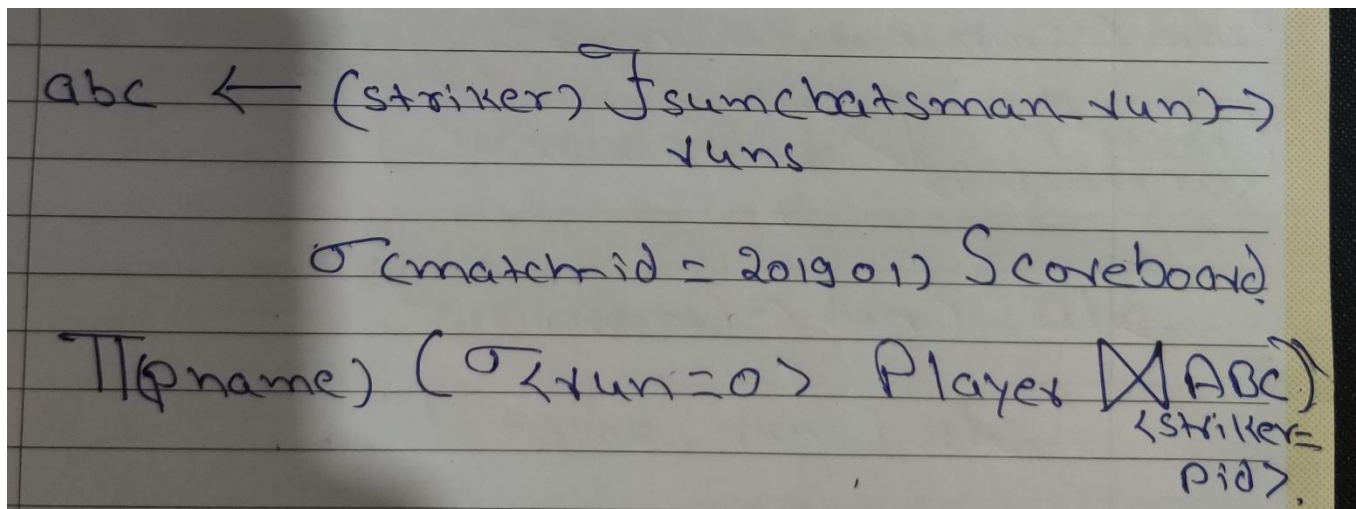 abc ← (striker) ℱ sum(batsman_run) →
runs
σ (matchid = 201901) Scoreboard
π(pname) (σ<run=0> Player ⋈ ABC)
<striker=
pid>.